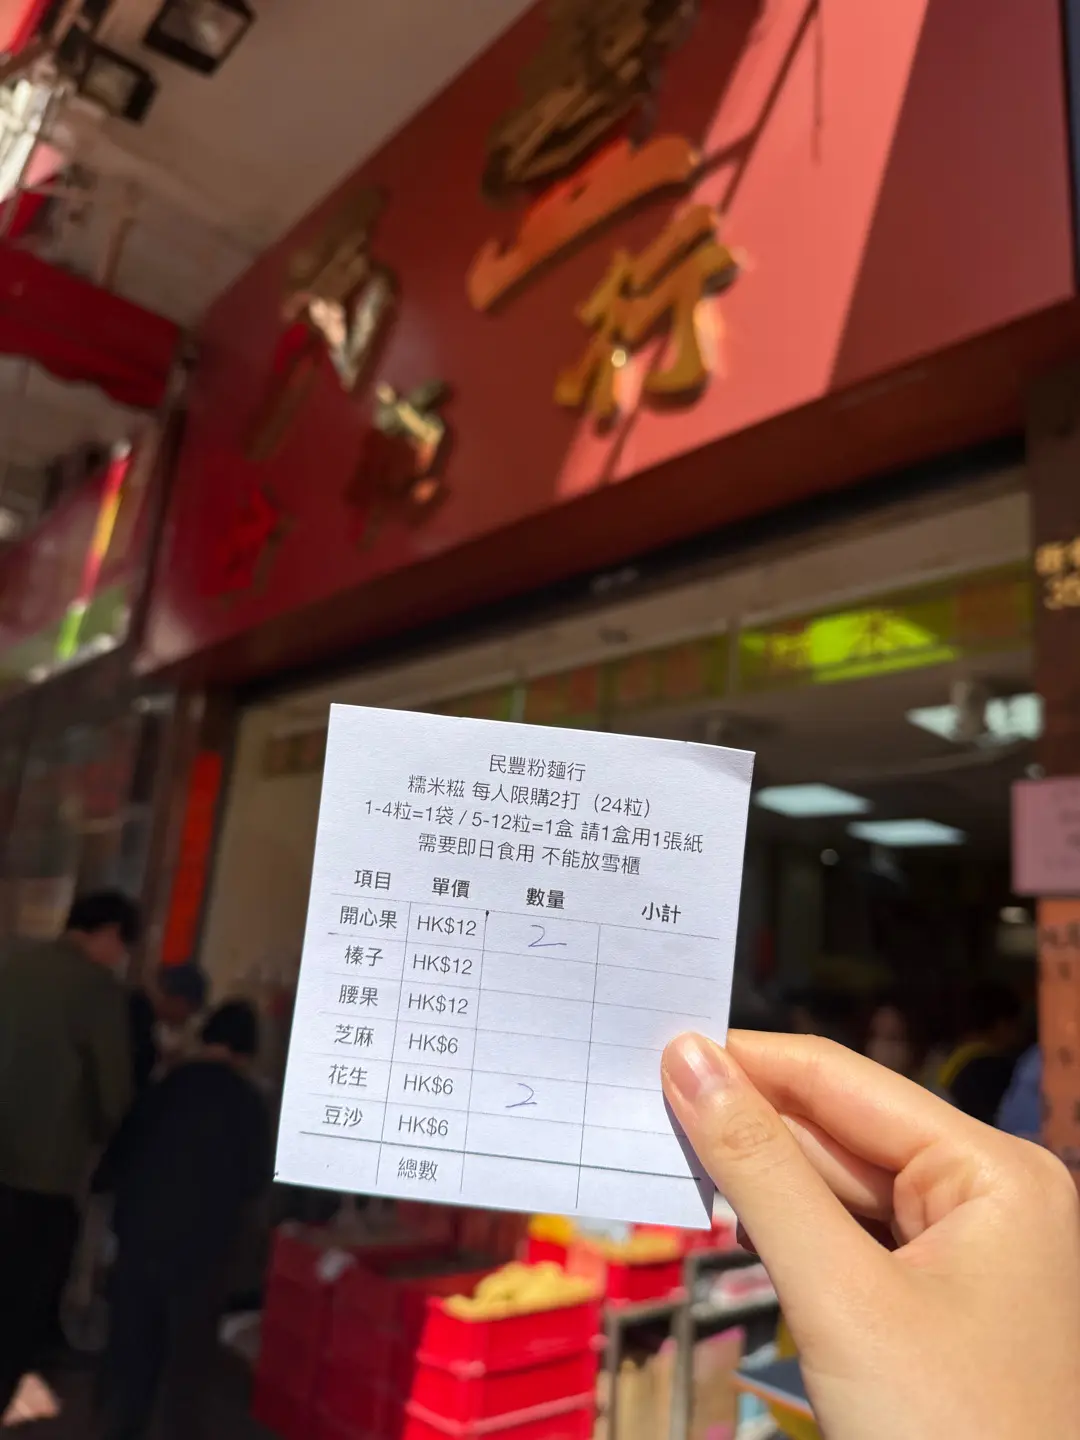 行
民豐粉麵行
糯米糍 每人限購2打（24粒）
1-4粒=1袋 / 5-12粒=1盒 請1盒用1張紙
需要即日食用 不能放雪櫃
項目 單價 數量 小計
開心果 HK$12 2
榛子 HK$12
腰果 HK$12
芝麻 HK$6
花生 HK$6 2
豆沙 HK$6
總數